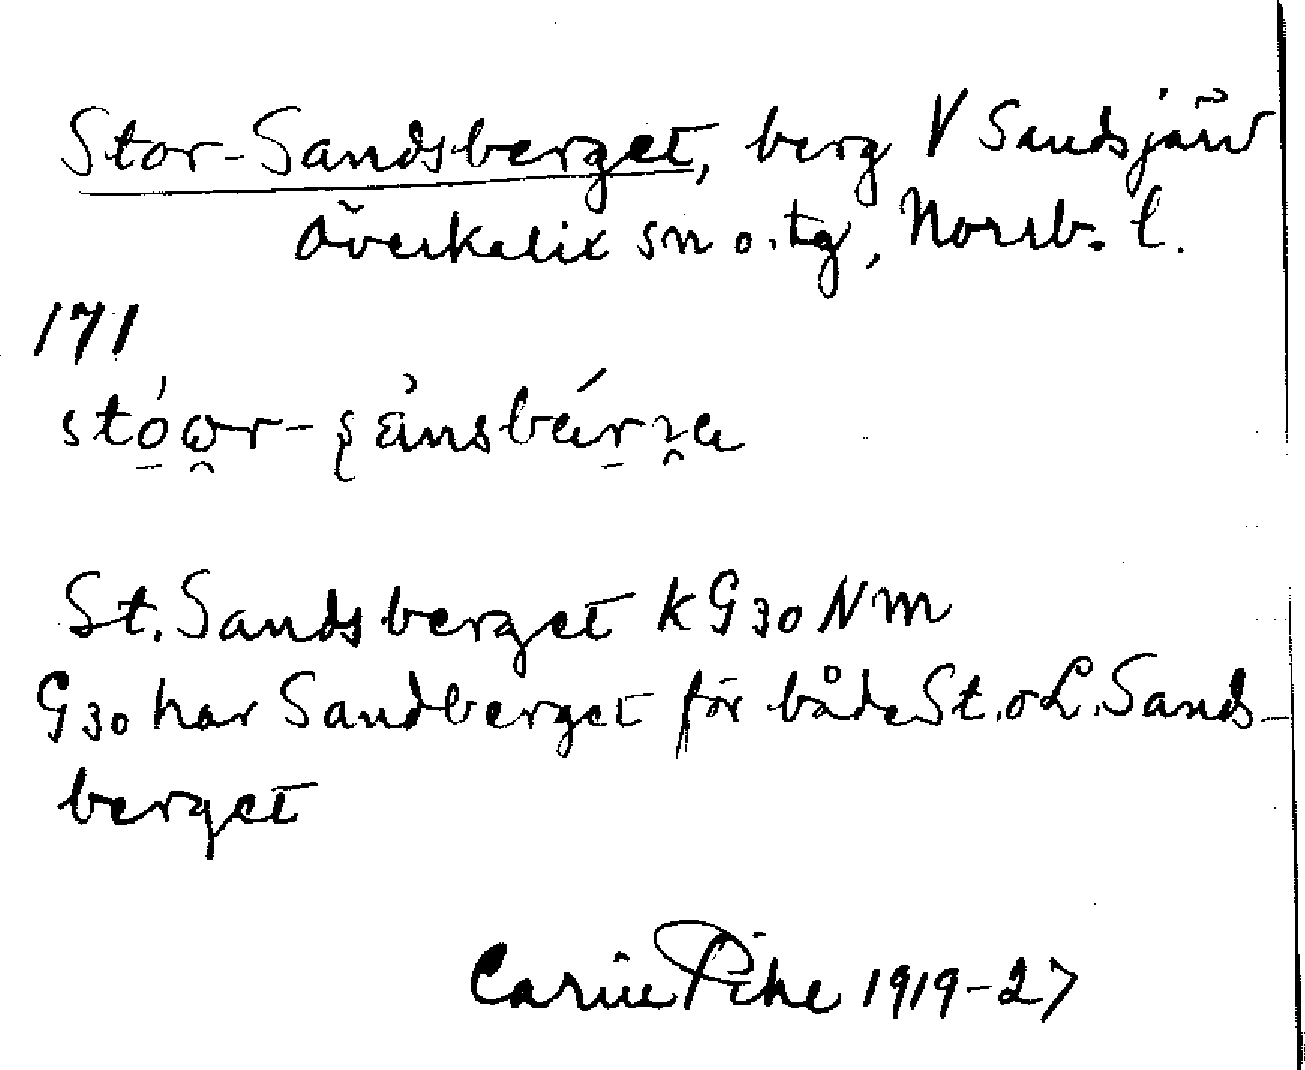 Stor-Sandsberget, berg V Sandsjärv
Överkalix sn o. tg, Norrb. l.
171
St. Sandsberget kG30NM
G30 har Sandberget för både St. o L. Sands-
berget
Carin Pihl 1919-27